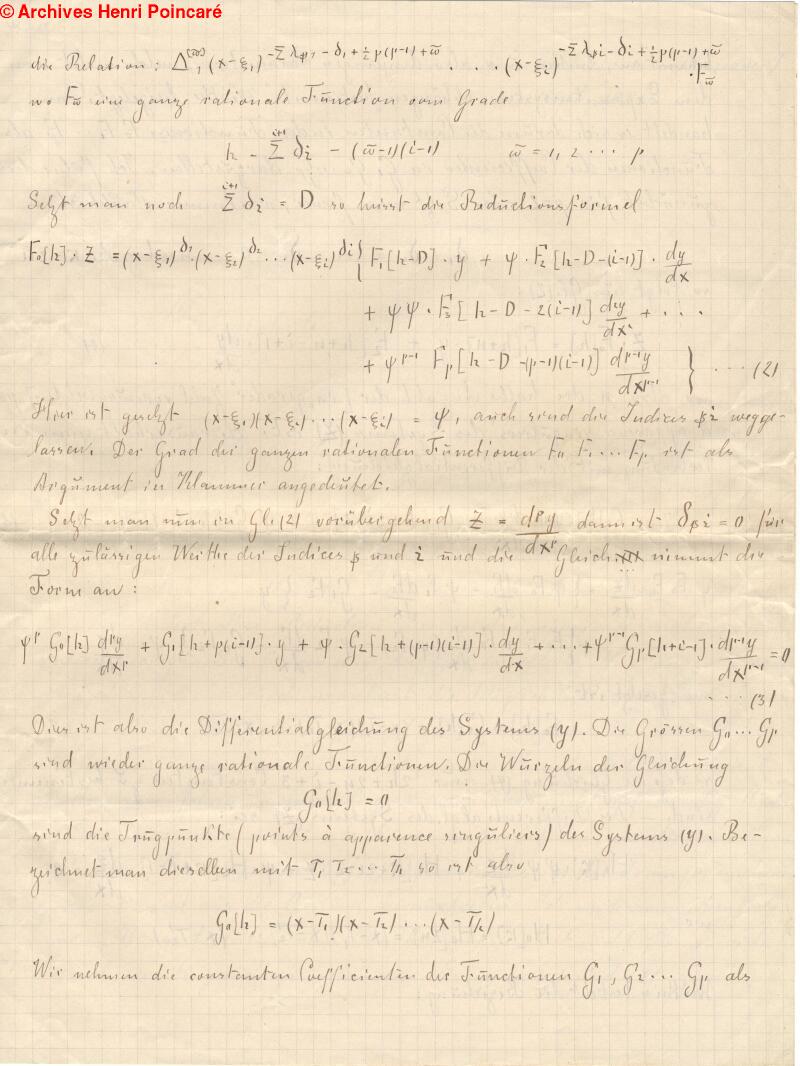 © Archives Henri Poincaré
die Relation: Δ₁^(ϖ) (x-ξ₁)^{-Σλ_{β1} - δ₁ + ½p(p-1) + ϖ} . . . (x-ξ_i)^{-Σλ_{βi} - δi + ½p(p-1) + ϖ} · F_ϖ
wo F_ϖ eine ganze rationale Function vom Grade
k - Σ^{i+1} δ_i - (ϖ-1)(i-1)    ϖ = 1, 2 ··· p
Setzt man noch Σ^{i+1} δ_i = D so heisst die Reductionsformel
F₀[k]. z = (x-ξ₁)^{δ₁}.(x-ξ₂)^{δ₂} ... (x-ξ_i)^{δi} { F₁[k-D] . y + ψ . F₂[k-D-(i-1)] . dy/dx
+ ψψ . F₃[k-D-2(i-1)] d²y/dx² + . . .
+ ψ^{p-1} F_p[k-D-(p-1)(i-1)] d^{p-1}y/dx^{p-1} } ... (2)
Hier ist gesetzt (x-ξ₁)(x-ξ₂) ... (x-ξ_i) = ψ, auch sind die Indices β i wegge-
lassen. Der Grad der ganzen rationalen Functionen F₀ F₁ ... F_p ist als
Argument in Klammer angedeutet.
Setzt man nun in Gl. (2) vorübergehend z = d^p y/dx^p dann ist δ_{βi} = 0 für
alle zulässigen Werthe der Indices β und i und die Gleich. nimmt die
Form an:
ψ^p G₀[k] d^p y/dx^p + G₁[k+p(i-1)] . y + ψ . G₂[k+(p-1)(i-1)] . dy/dx + ... + ψ^{p-1} G_p[k+i-1] . d^{p-1}y/dx^{p-1} = 0
... (3)
Dies ist also die Differentialgleichung des Systems (y). Die Grössen G₀ ... G_p
sind wieder ganze rationale Functionen. Die Wurzeln der Gleichung
G₀[k] = 0
sind die Trugpunkte (points à apparence singuliers) des Systems (y). Be-
zeichnet man dieselben mit τ₁ τ₂ ... τ_k so ist also
G₀[k] = (x-τ₁)(x-τ₂) ... (x-τ_k)
Wir nehmen die constanten Coefficienten der Functionen G₁, G₂ ... G_p als